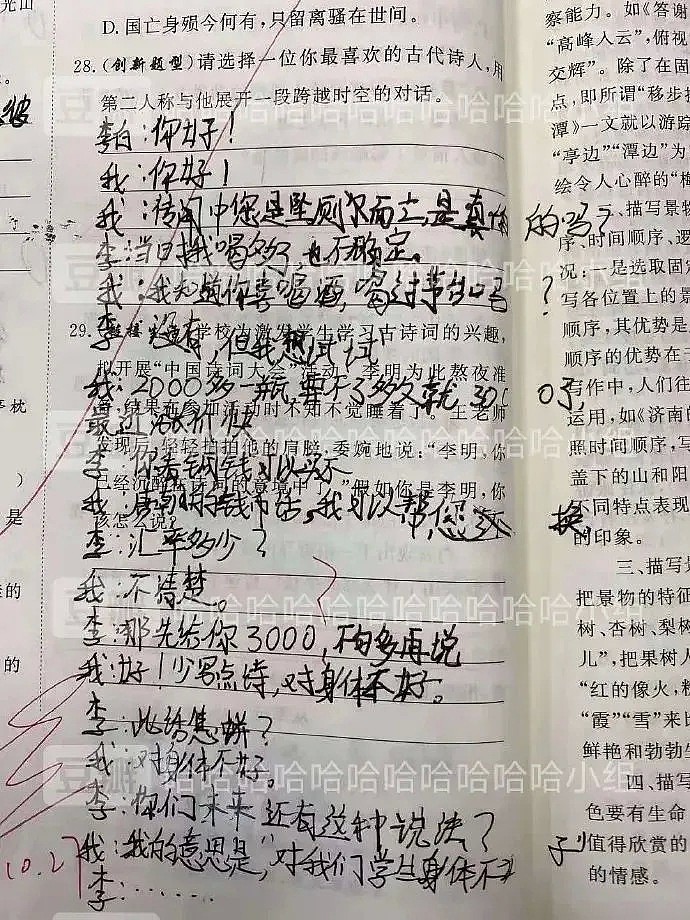 D. 国亡身殒今何有，只留离骚在世间。
28.(创新题型)请选择一位你最喜欢的古代诗人，用
第二人称与他展开一段跨越时空的对话。
李白：你好！
我：你好！
我：传闻中您是坠厕尔而亡,是真的 的吗？
李：当时我喝多了，也不确定。
我：我知道你喜喝酒，喝过茅台吗？
李：没有，但我想试试
29. 学校为激发学生学习古诗词的兴趣，
拟开展“中国诗词大会”活动，李明为此熬夜准
我：2000多一瓶，要不了多久就3000了，
备，结果在参加活动时不知不觉睡着了。王老师
最近涨价快
发现后，轻轻拍拍他的肩膀，委婉地说：“李明，你
李：你看铜钱可以不
已经沉醉在诗词的意境中了。”假如你是李明，你
我：唐朝的钱币话，我可以帮您 换。
该怎么说？
李：汇率多少？
我：不清楚。
李：那先给你3000，不够多再说
我：好！少写点诗，对身体不好。
李：此话怎讲？
我：对身体不好。
李：你们未来还有这种说法？
我：我的意思是“对我们学生身体不 子”
李：……
10.27
光山
枕
）
是
的
的
察能力。如《答谢
“高峰入云”，俯视
交辉”。除了在固
点，即所谓“移步换
潭》一文就以游踪
“亭边”“潭边”为
绘令人心醉的“梅
二、描写景物
序、时间顺序、逻
况：一是选取固定
写各位置上的景
顺序，其优势是
顺序的优势在于
写作中，人们往
运用，如《济南
照时间顺序，写
盖下的山和阳
不同特点表现
的印象。
三、描写景
把景物的特征
树、杏树、梨树
儿”，把果树人
“红的像火，粉
“霞”“雪”来比
鲜艳和勃勃生
四、描写
色要有生命
值得欣赏的
的情感。
豆瓣 哈哈哈哈哈哈哈哈哈哈小组